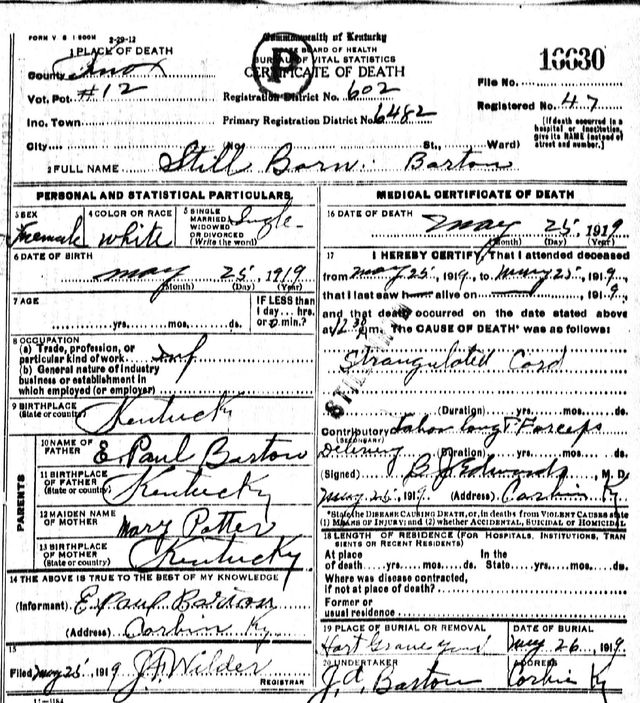 FORM V S 1 500M 2-29-12
Commonwealth of Kentucky
BOARD OF HEALTH
BUREAU OF VITAL STATISTICS
CERTIFICATE OF DEATH
P
16630
1 PLACE OF DEATH
County Knox
Vot. Pct #12
Inc. Town
City No. St., Ward)
Registration District No. 602
Primary Registration District No. 6482
File No.
Registered No. 47
[If death occurred in a
hospital or institution,
give its NAME instead of
street and number.]
2 FULL NAME Still Born Barton
PERSONAL AND STATISTICAL PARTICULARS
3 SEX Female
4 COLOR OR RACE white
5 SINGLE
MARRIED
WIDOWED
OR DIVORCED
(Write the word) Single
6 DATE OF BIRTH
may 25 1919
(Month) (Day) (Year)
7 AGE
yrs. mos. ds.
IF LESS than
1 day... hrs.
or 0 min.?
8 OCCUPATION
(a) Trade, profession, or
particular kind of work Inf
(b) General nature of industry
business or establishment in
which employed (or employer)
9 BIRTHPLACE
(State or country) Kentucky
PARENTS
10 NAME OF
FATHER E. Paul Barton
11 BIRTHPLACE
OF FATHER
(State or country) Kentucky
12 MAIDEN NAME
OF MOTHER Mary Potter
13 BIRTHPLACE
OF MOTHER
(State or country) Kentucky
14 THE ABOVE IS TRUE TO THE BEST OF MY KNOWLEDGE
(Informant) E Paul Barton
(Address) Corbin Ky
15
Filed may 25 1919 J.F. Wilder
REGISTRAR
11-1184
MEDICAL CERTIFICATE OF DEATH
16 DATE OF DEATH
may 25 1919
(Month) (Day) (Year)
17 I HEREBY CERTIFY, That I attended deceased
from may 25, 1919, to may 25, 1919,
that I last saw h alive on 1919,
and that death occurred on the date stated above
at 12 30 pm. The CAUSE OF DEATH* was as follows:
Strangulated Cord
(Duration) yrs. mos. ds.
Contributory Labor long & Forceps
(SECONDARY)
Delivery (Duration) yrs. mos. ds.
(Signed) B J Edwards, M. D.
may 25 1919. (Address) Corbin Ky
*State the DISEASE CAUSING DEATH, or, in deaths from VIOLENT CAUSES state
(1) MEANS OF INJURY; and (2) whether ACCIDENTAL, SUICIDAL OR HOMICIDAL
18 LENGTH OF RESIDENCE (FOR HOSPITALS, INSTITUTIONS, TRAN
SIENTS OR RECENT RESIDENTS)
At place In the
of death yrs. mos. ds. State yrs. mos. ds.
Where was disease contracted,
if not at place of death?
Former or
usual residence
19 PLACE OF BURIAL OR REMOVAL
Hart Grave yard
DATE OF BURIAL
may 26, 1919.
20 UNDERTAKER
J.A. Barton
ADDRESS
Corbin Ky